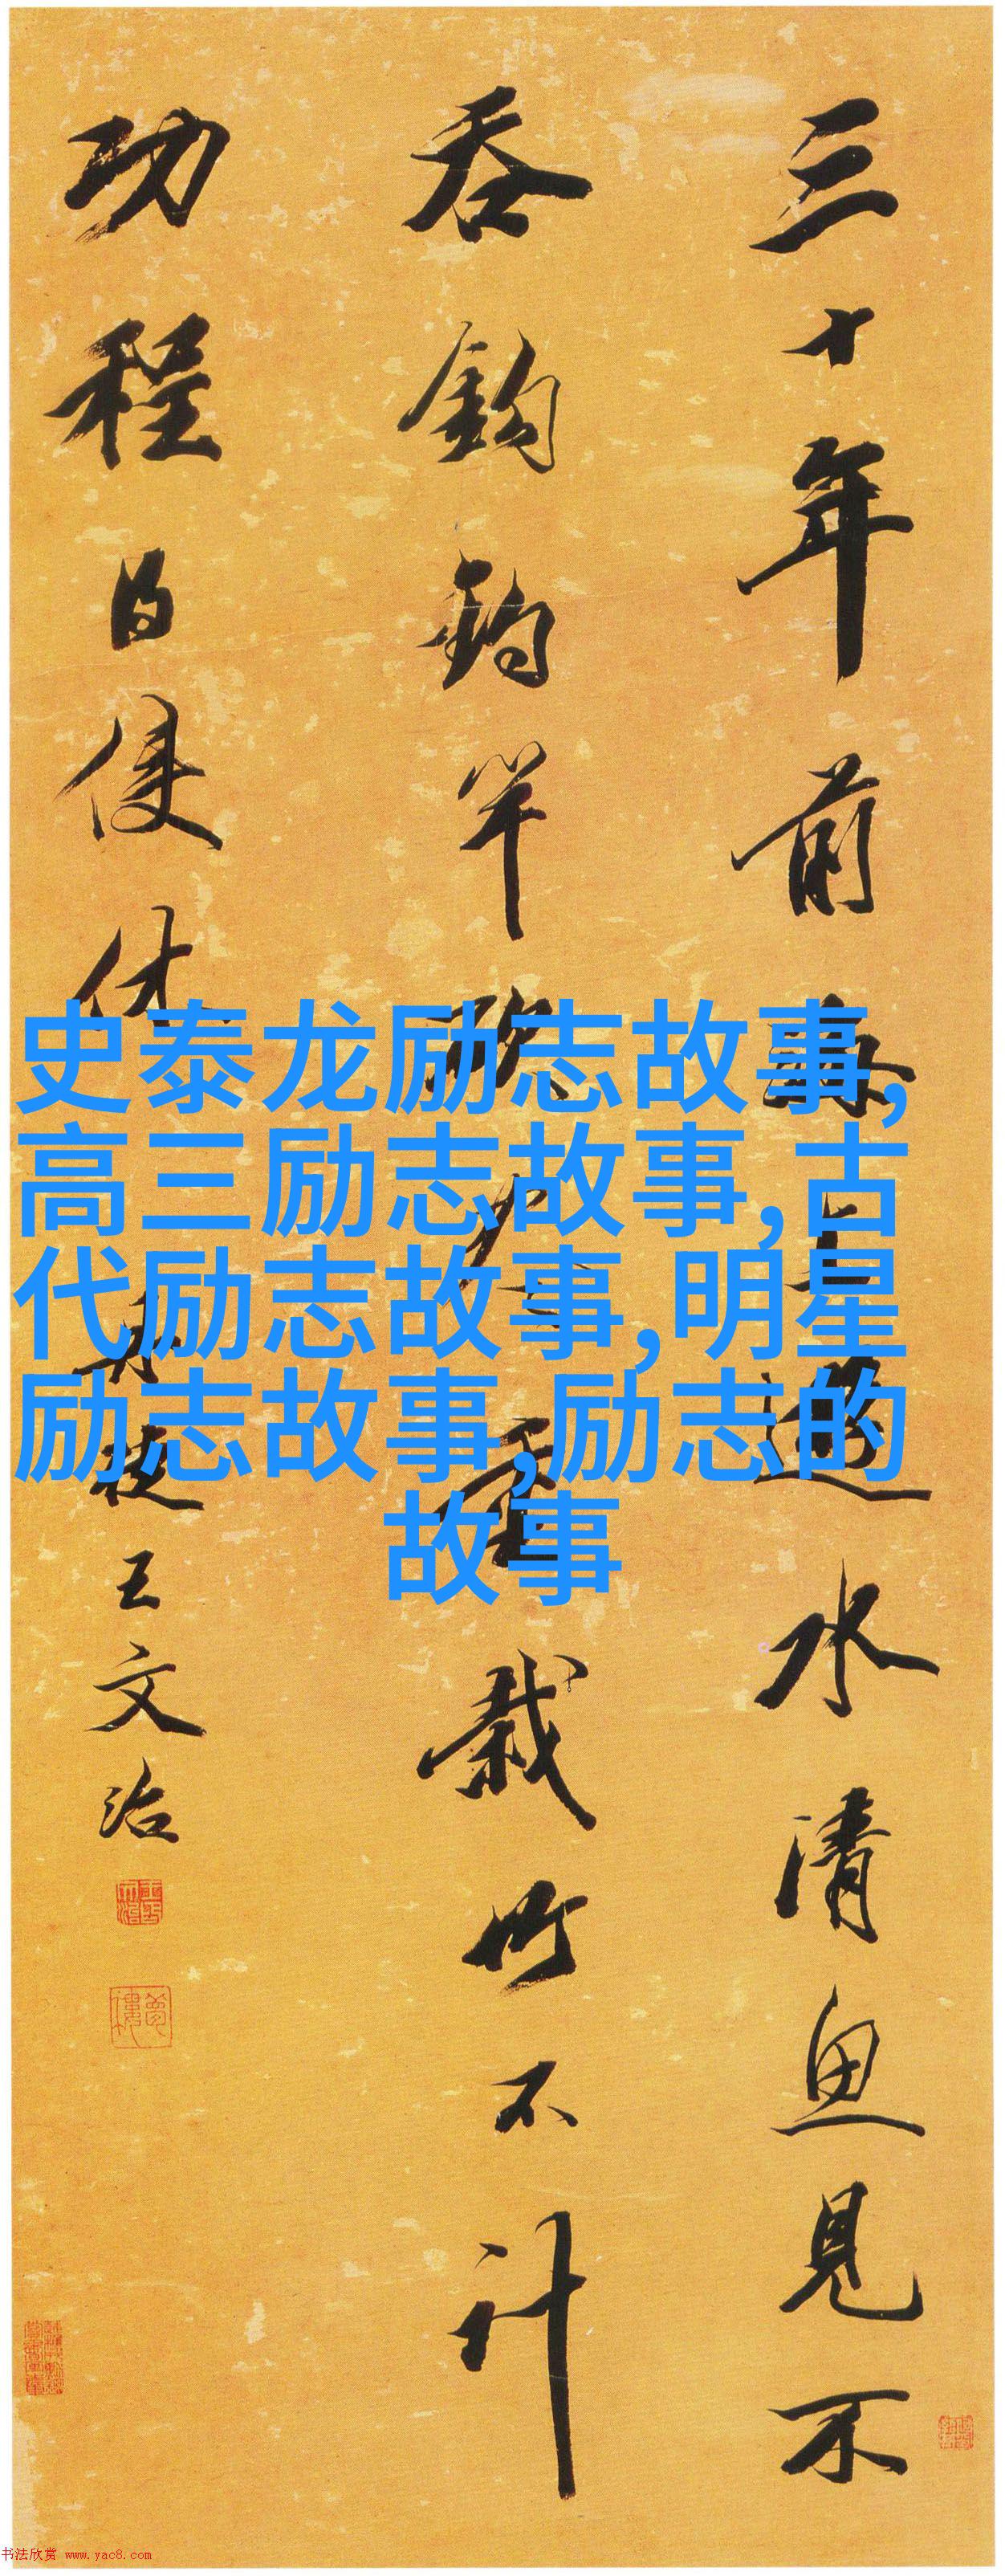 三十年前海上遊水清魚見不
吞鉤釣竿斫盡重栽竹不計
功程得便休
丹徒王文治
史泰龙励志故事,
高三励志故事,古
代励志故事,明星
励志故事,励志的
故事
书法欣赏 www.yac8.com